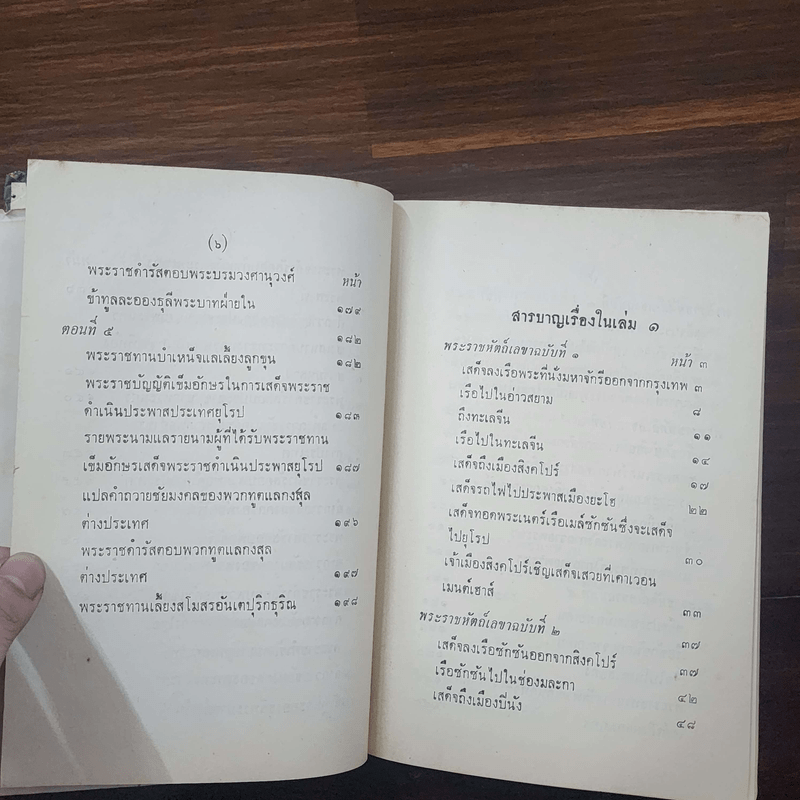 (๖)
หน้า
พระราชดำรัสตอบพระบรมวงศานุวงศ์
ข้าทูลละอองธุลีพระบาทฝ่ายใน ๑๗๙
ตอนที่ ๕ ๑๘๒
พระราชทานบำเหน็จแลเลี้ยงลูกขุน ๑๘๒
พระราชบัญญัติเข็มอักษรในการเสด็จพระราช
ดำเนินประพาสประเทศยุโรป ๑๘๓
รายพระนามแลรายนามผู้ที่ได้รับพระราชทาน
เข็มอักษรเสด็จพระราชดำเนินประพาสยุโรป ๑๘๗
แปลคำถวายชัยมงคลของพวกทูตแลกงสุล
ต่างประเทศ ๑๙๖
พระราชดำรัสตอบพวกทูตแลกงสุล
ต่างประเทศ ๑๙๗
พระราชทานเลี้ยงสโมสรอันเตปุริกธุริณ ๑๙๘
สารบาญเรื่องในเล่ม ๑
พระราชหัตถ์เลขาฉบับที่ ๑ หน้า ๓
เสด็จลงเรือพระที่นั่งมหาจักรีออกจากกรุงเทพ ๓
เรือไปในอ่าวสยาม ๘
ถึงทะเลจีน ๑๑
เรือไปในทะเลจีน ๑๔
เสด็จถึงเมืองสิงคโปร์ ๑๗
เสด็จรถไฟไปประพาสเมืองยะโฮ ๒๒
เสด็จทอดพระเนตร์เรือเมล์ซักซันซึ่งจะเสด็จ
ไปยุโรป ๓๐
เจ้าเมืองสิงคโปร์เชิญเสด็จเสวยที่เคาเวอน
เมนต์เฮาส์ ๓๓
พระราชหัตถ์เลขาฉบับที่ ๒ ๓๗
เสด็จลงเรือซักซันออกจากสิงคโปร์ ๓๗
เรือซักซันไปในช่องมละกา ๔๒
เสด็จถึงเมืองปีนัง ๔๘